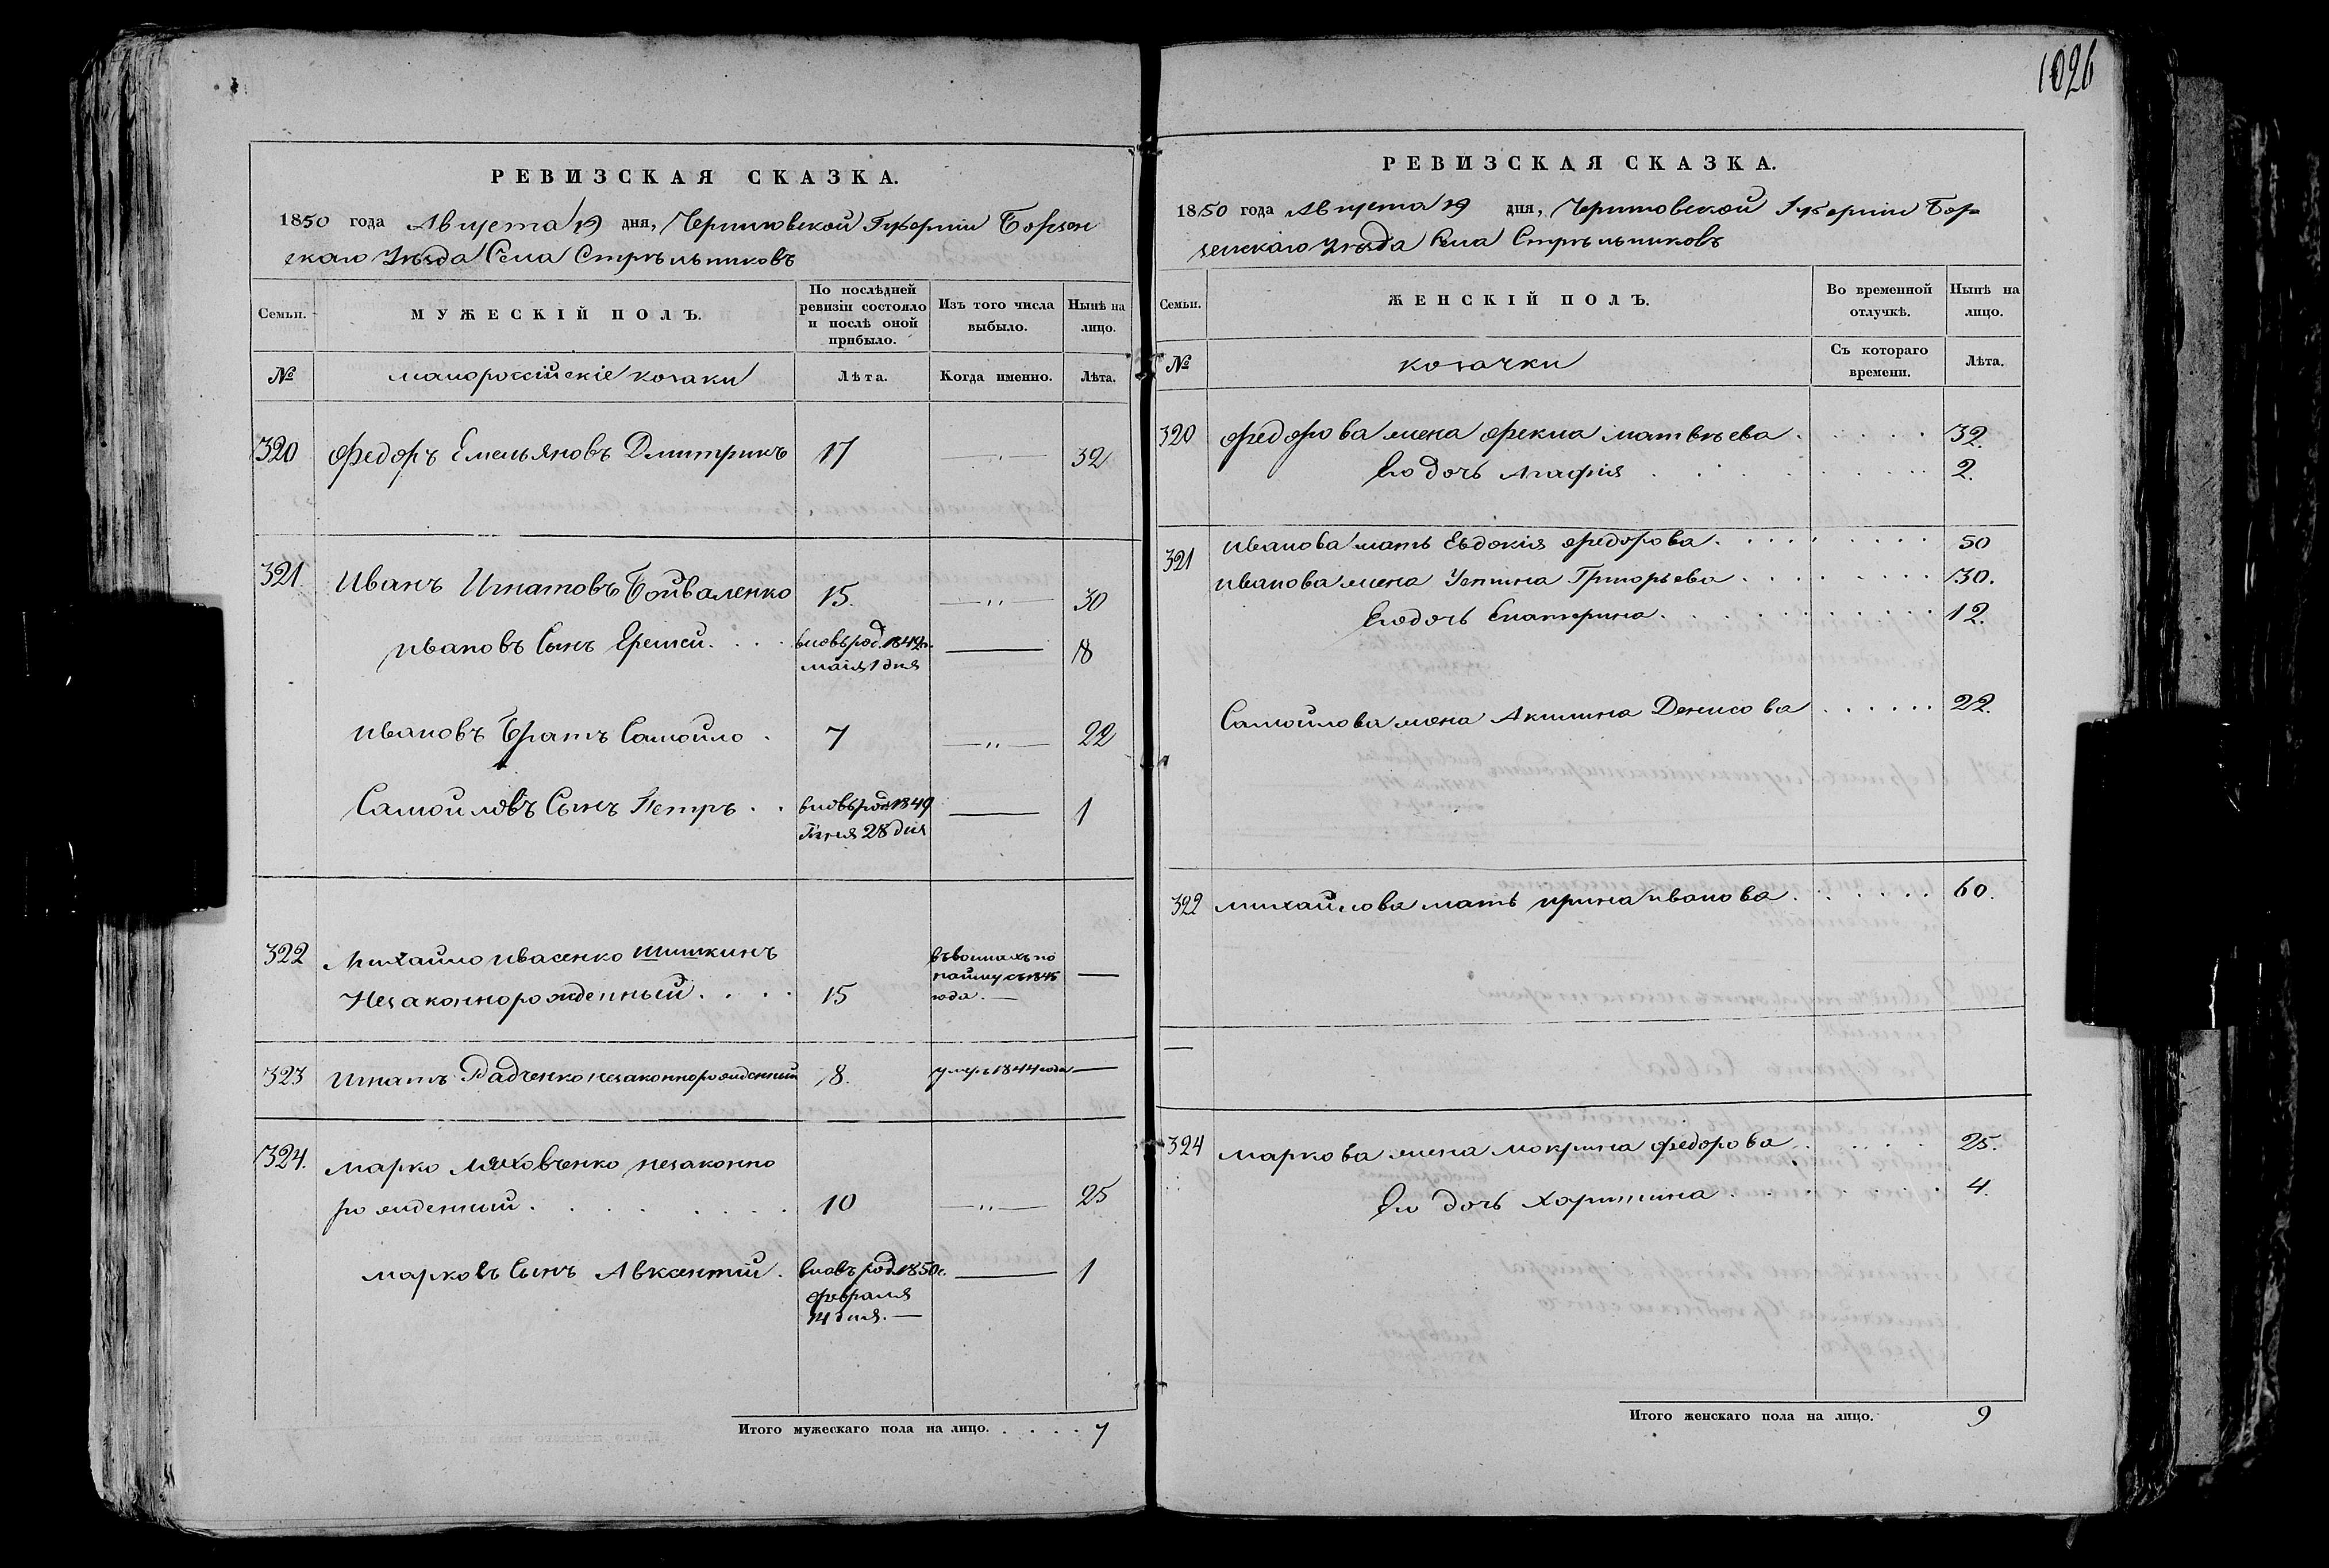 1026
РЕВИЗСКАЯ СКАЗКА.
1850 года Августа 19 дня, Черниговской Губерніи Борзен
скаго Уѣзда Села Стрѣльниковъ
Семьи.
МУЖЕСКІЙ ПОЛЪ.
По послѣдней ревизіи состояло и послѣ оной прибыло.
Изъ того числа выбыло.
Нынѣ на лицо.
№
малороссійскіе козаки
Лѣта.
Когда именно.
Лѣта.
320 Федоръ Емельяновъ Дмитрикъ 17 — " — 32
321 Иванъ Игнатовъ 15. — " — 30
Ивановъ Сынъ . . . вновь род. 1842 г. — 8
маія 1 дня
Ивановъ Братъ Самойло . 7 — " — 22
Самойловъ Сынъ Петръ . . вновь род. 1849 — 1
Іюня 28 дня
322 Михайло Ивасенко Шишкинъ
Незаконнорожденный . . . . 15 —
найму съ 1845
года. —
323 Игнатъ Радченко незаконнорожденный 8. умеръ 1844 года —
324. Марко Ляховченко незаконно
рожденный . . . . . . . . 10 — " — 25
Марковъ Сынъ Авксентій . вновь род. 1850 г. — 1
февраля
14 дня. —
Итого мужескаго пола на лицо. . . . . 7
РЕВИЗСКАЯ СКАЗКА.
1850 года Августа 19 дня, Черниговской Губерніи Бор
зенскаго Уѣзда Села Стрѣльниковъ
Семьи.
ЖЕНСКІЙ ПОЛЪ.
Во временной отлучкѣ.
Нынѣ на лицо.
№
козачки
Съ котораго времени.
Лѣта.
320 Федорова жена Фекла Матвѣева . . . . . 32.
Его дочь Агафія . . . . . . 2.
321 Иванова мать Евдокія Федорова . . . . . . . . 50
Иванова жена Устина Григорьева . . . . . . . . 30.
Его дочь Екатерина . . . . . . . . . . 12.
Самойлова жена Акилина Денисова . . . . . . 22.
322 Михайлова мать Ирина Иванова . . . . . . 60.
—
324 Маркова жена Мокрина Федорова . . . . . 25.
Его дочь Харитина . . . . . . . 4.
Итого женскаго пола на лицо. 9